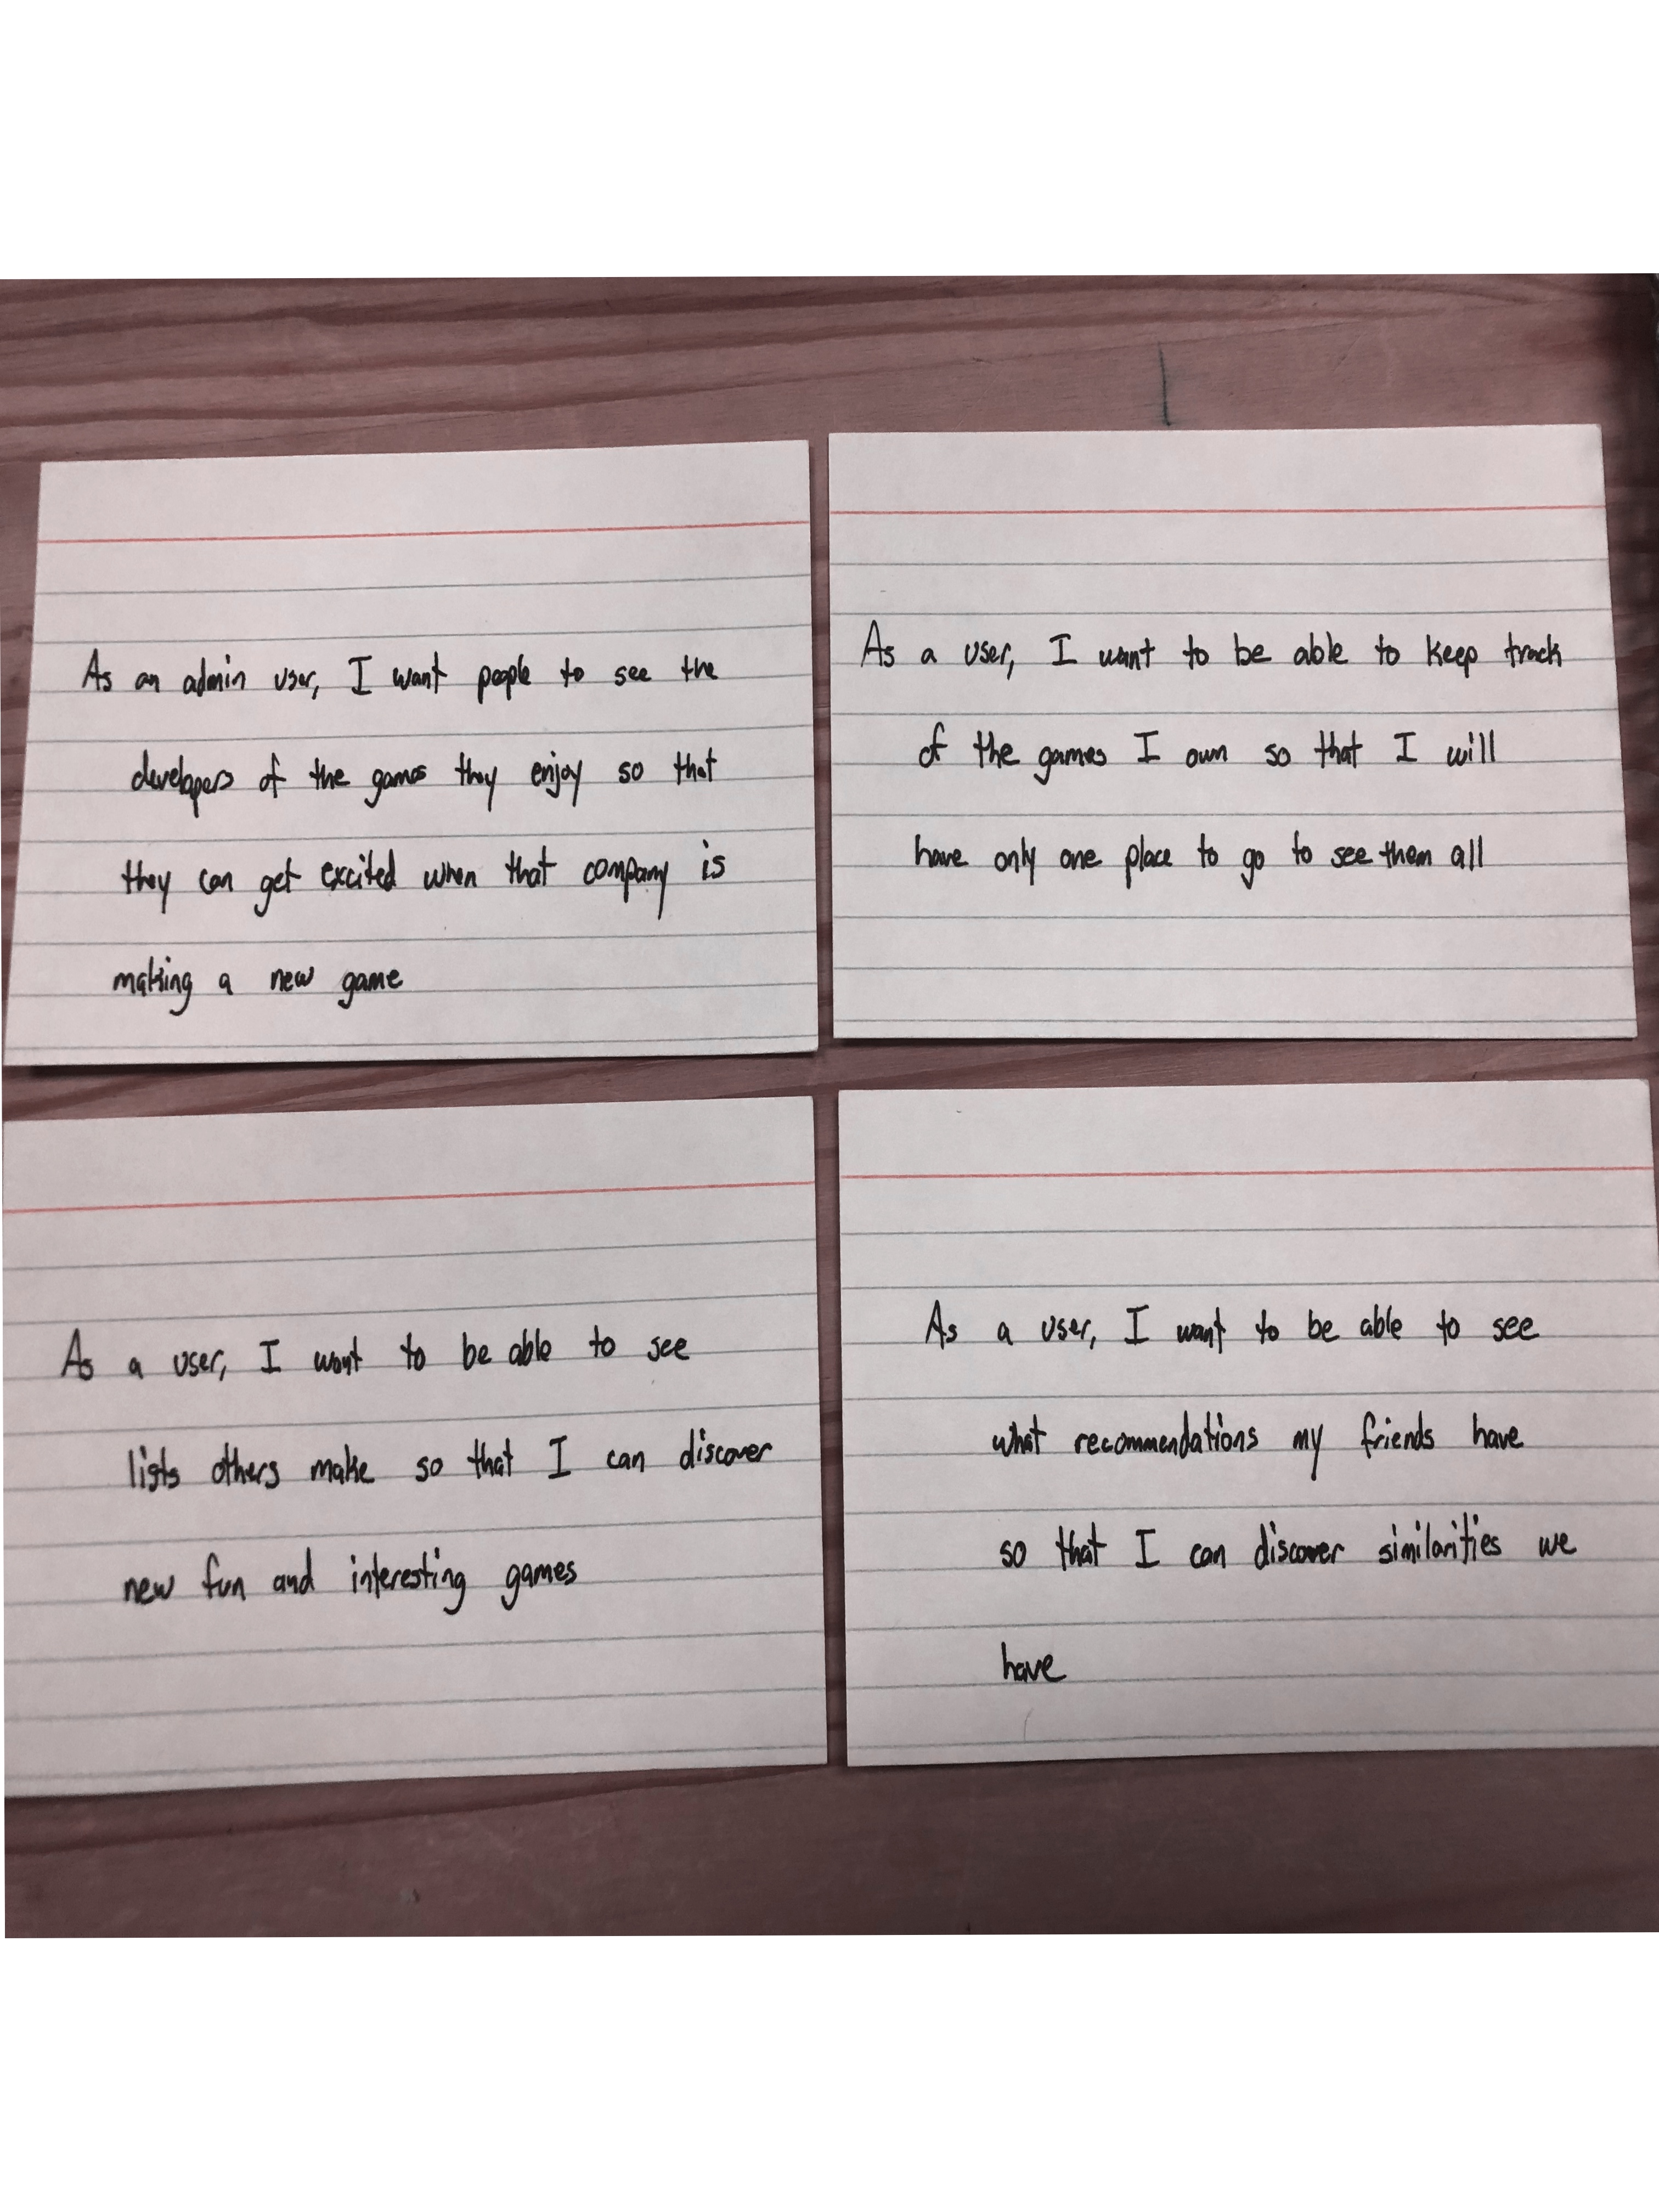 As an admin user, I want people to see the
developers of the games they enjoy so that
they can get excited when that company is
making a new game
As a user, I want to be able to keep track
of the games I own so that I will
have only one place to go to see them all
As a user, I want to be able to see
lists others make so that I can discover
new fun and interesting games
As a user, I want to be able to see
what recommendations my friends have
so that I can discover similarities we
have